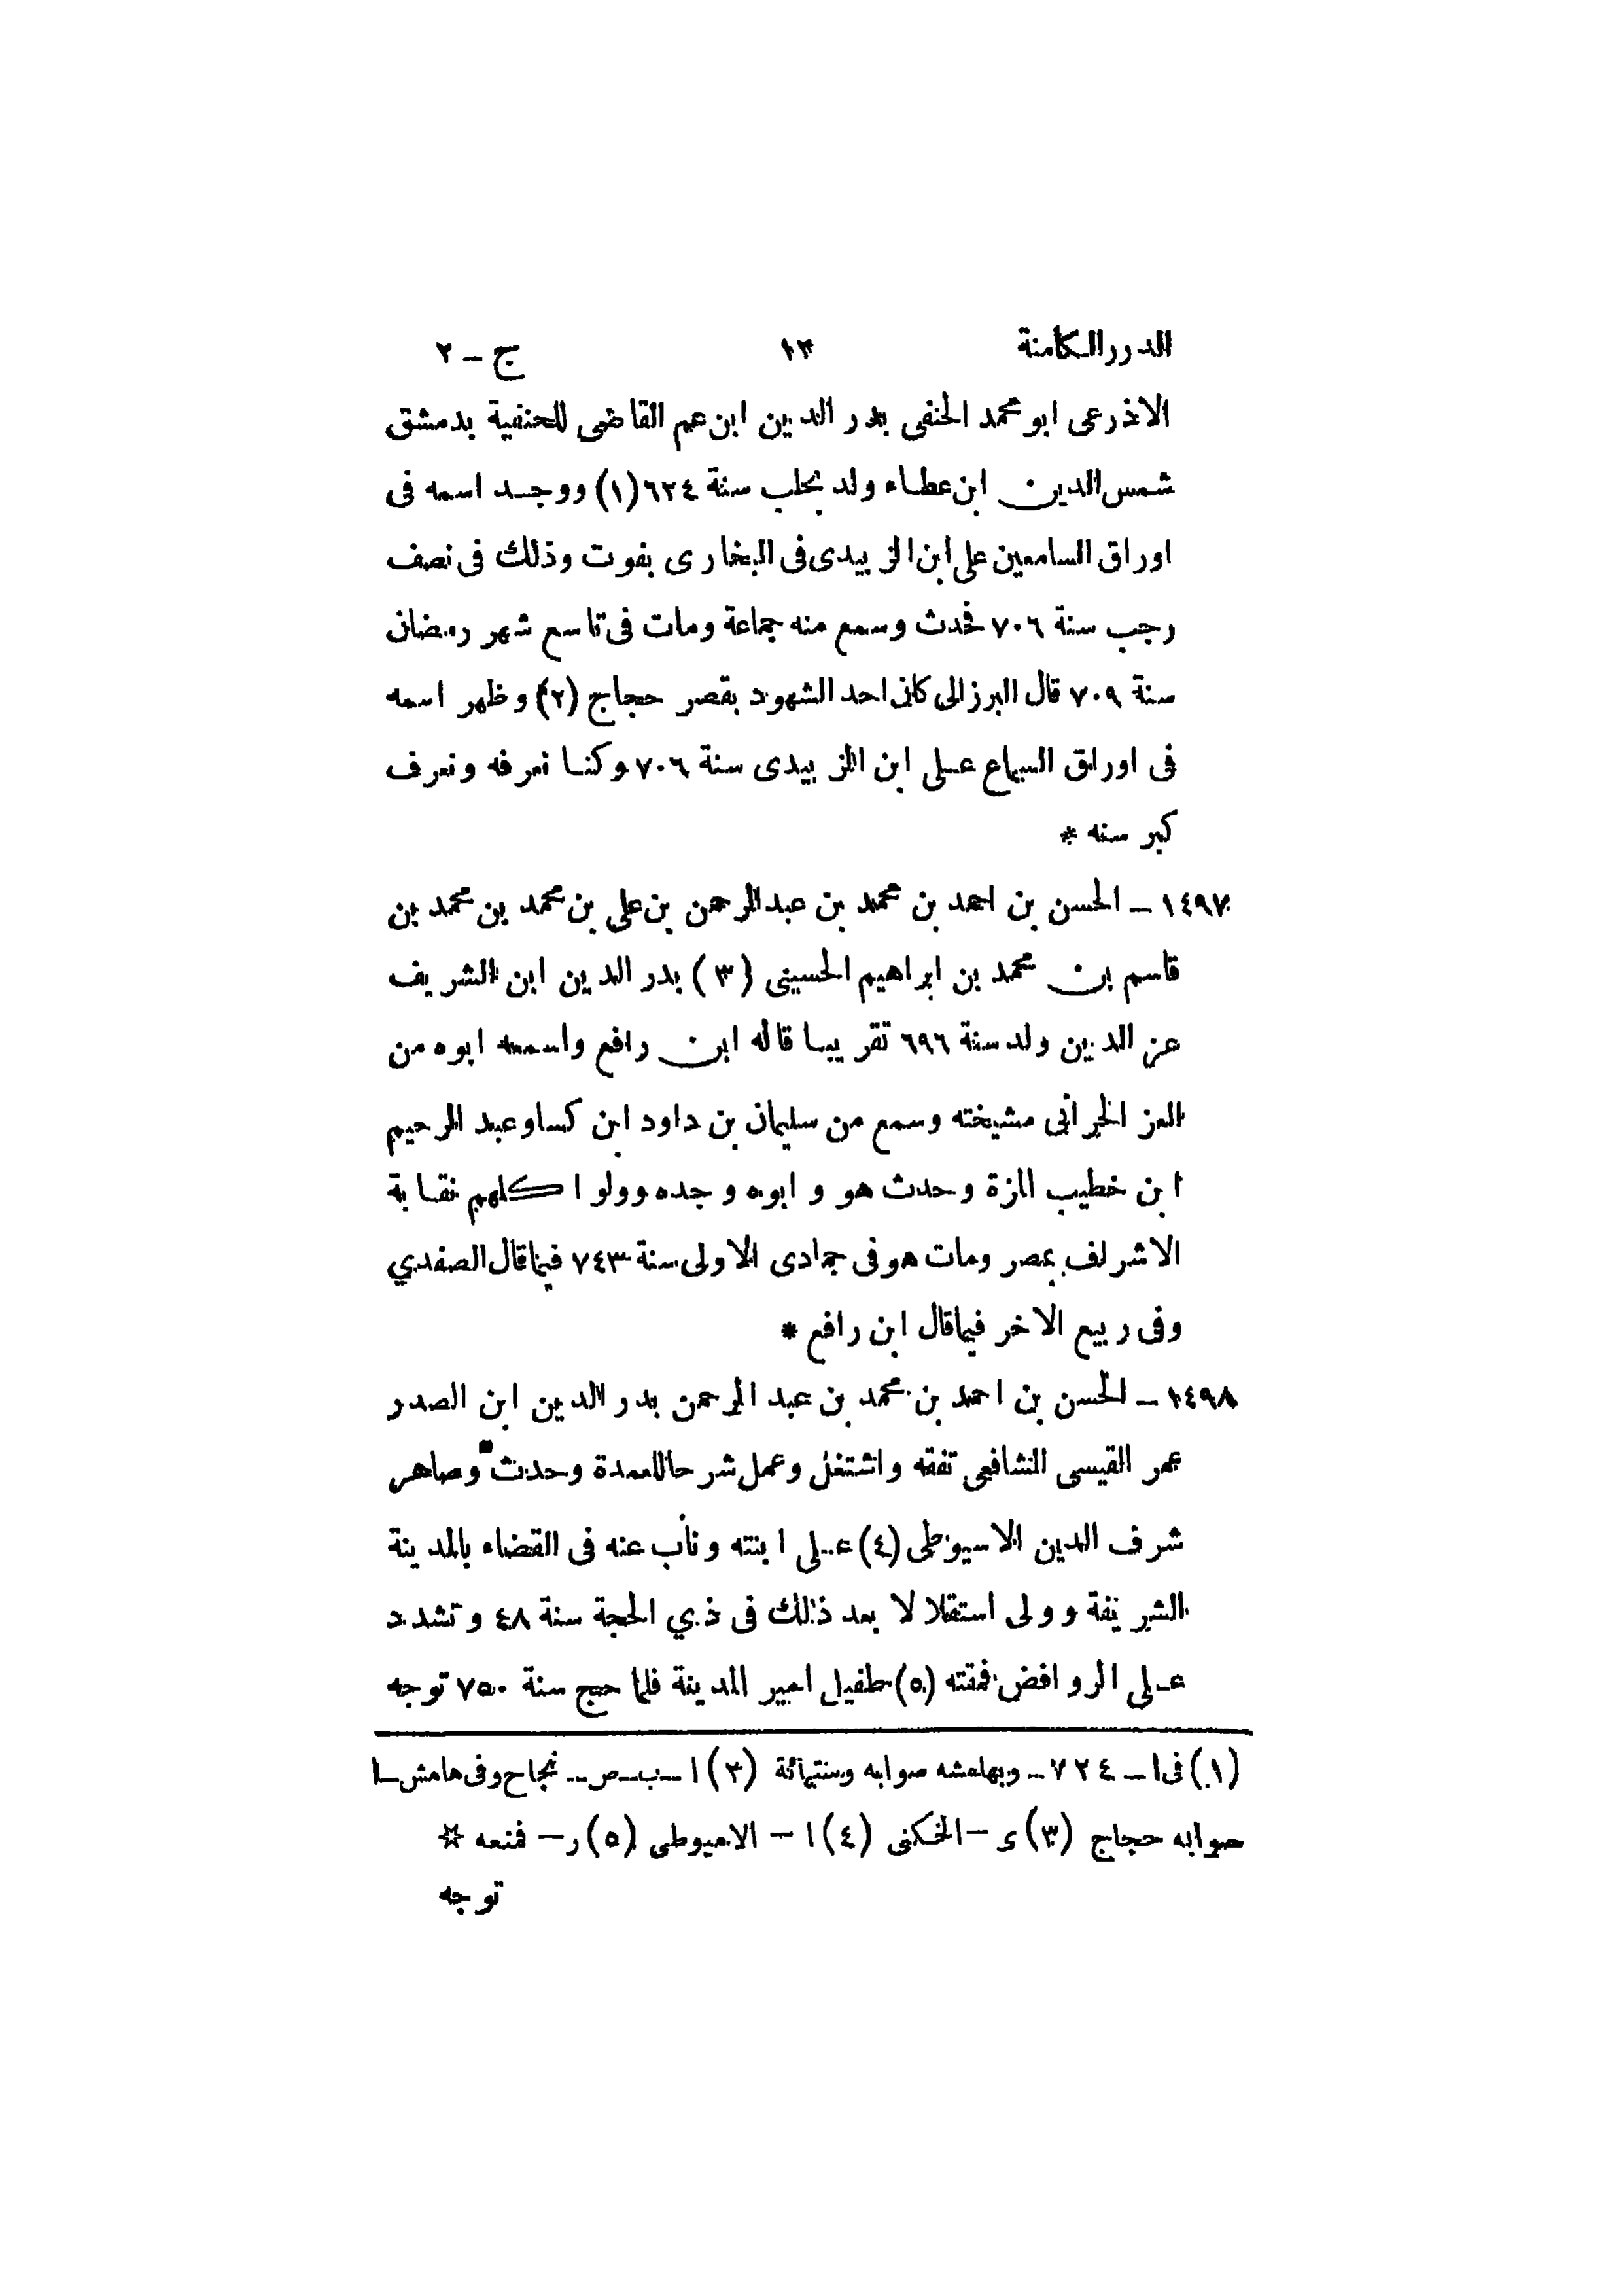 الدررالكامنة ١٣ ج - ٢
الاذرعى ابو محمد الحنفى بدر الدين ابن عم القاضى للحنفية بدمشق
شمس الدين ابن عطاء ولد بحلب سنة ٦٢٤ (١) ووجد اسمه فى
اوراق السامعين على ابن الزبيدى فى البخارى بفوت وذلك فى نصف
رجب سنة ٧٠٦ فحدث وسمع منه جماعة ومات فى تاسع شهر رمضان
سنة ٧٠٩ قال البرزالى كان احد الشهود بقصر حجاج (٢) وظهر اسمه
فى اوراق السماع على ابن الزبيدى سنة ٧٠٦ وكنا نعرفه ونعرف
كبر سنه *
١٤٩٧ - الحسن بن احمد بن محمد بن عبدالرحمن بن على بن محمد بن محمد بن
قاسم بن محمد بن ابراهيم الحسينى (٣) بدر الدين ابن الشريف
عز الدين ولد سنة ٦٩٦ تقريبا قاله ابن رافع واسمعه ابوه من
العز الحرانى مشيخته وسمع من سليمان بن داود ابن كسا وعبد الرحيم
ابن خطيب المزة وحدث هو و ابوه و جده وولوا كلهم نقابة
الاشراف بمصر ومات هو فى جمادى الاولى سنة ٧٤٣ فيما قال الصفدي
وفى ربيع الاخر فيما قال ابن رافع *
١٤٩٨ - الحسن بن احمد بن محمد بن عبد الرحمن بدر الدين ابن الصدر
عمر القيسى الشافعى تفقه واشتغل وعمل شرحا للعمدة وحدث وصاهر
شرف الدين الاسيوطى (٤) على ابنته وناب عنه فى القضاء بالمدينة
الشريفة وولى استقلالا بعد ذلك فى ذي الحجة سنة ٤٨ وتشدد
على الروافض فمقته (٥) طفيل امير المدينة فلما حج سنة ٧٥٠ توجه
(١) فى ا - ٧٢٤ - وبهامشه صوابه وستمائة (٢) ا - ب - ص - نجاح وفى هامش - ا
صوابه حجاج (٣) ى - الخكنى (٤) ا - الاميوطى (٥) ر - فمنعه ☆
توجه